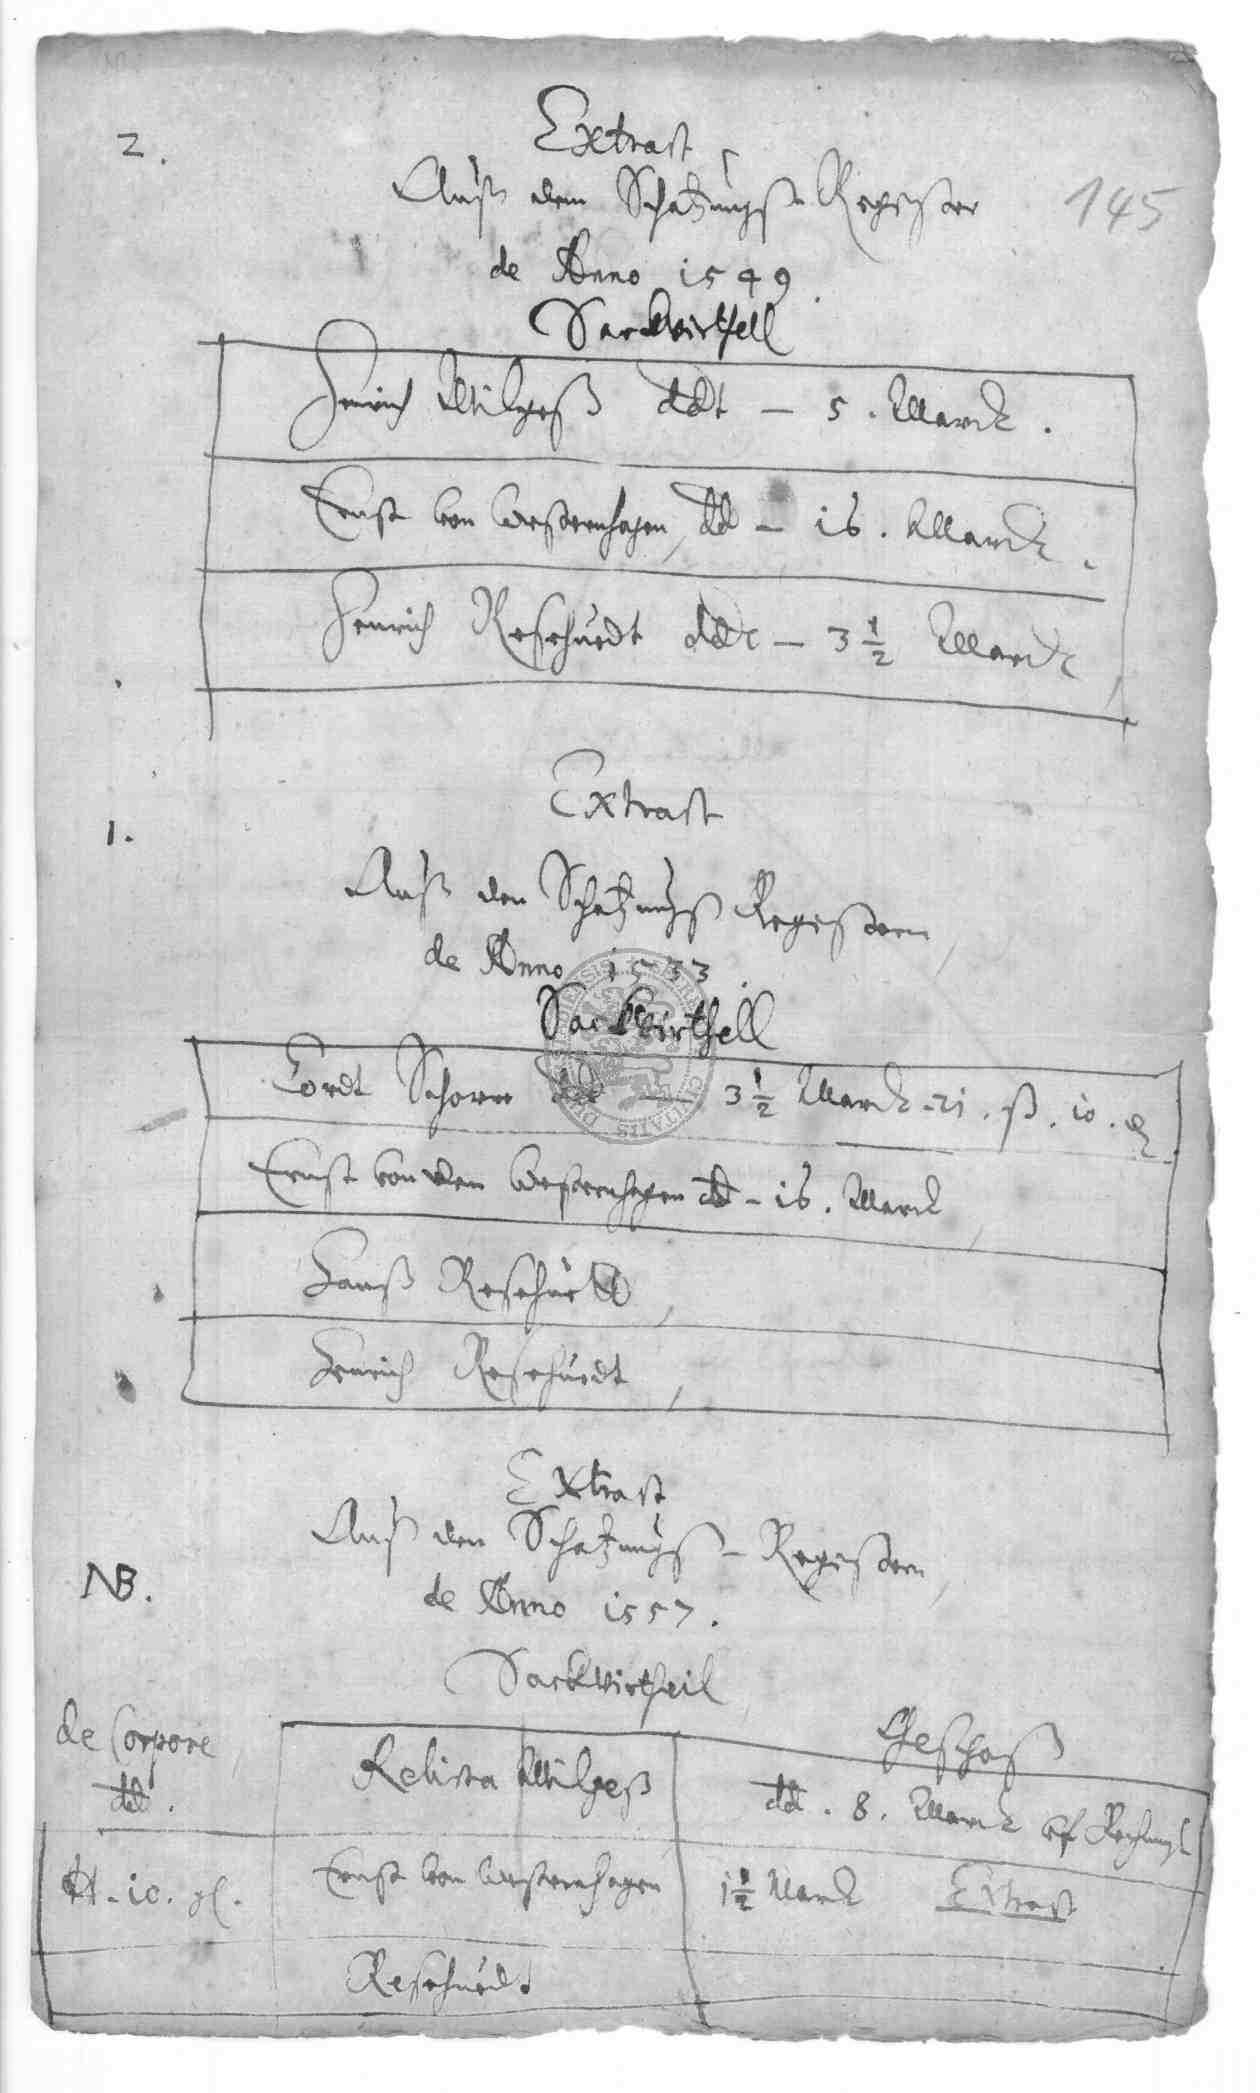 2.
Extract
Auß dem Schatzungß Register
145
de Anno 1549.
Sackvirthell
Henrich Wilgeß ddt – 5. Marck.
Ernst von Westernhagen, dd – 16. Marck.
Henrich Resehuedt ddt – 3 1/2 Marck,
Extract
1.
Auß den Schatzungß Registern,
de Anno 1533.
Sackvirthell
Cordt Schorn dd — 3 1/2 Marck 21. ß. 10. d
Ernst von dem Westernhagen dd – 16. Marck,
Hanß Resehuedt,
Henrich Resehuedt,
Extract
Auß den Schatzungß – Registern,
NB.
de Anno 1557.
Sackvirtheil,
de Corpore, Geschoß
dd. Relicta Wilgeß dd. 8. Marck vf Rechnung
dt. 10. gl. Ernst von Westernhagen 1 1/2 Marck Extract
Resehuedt.